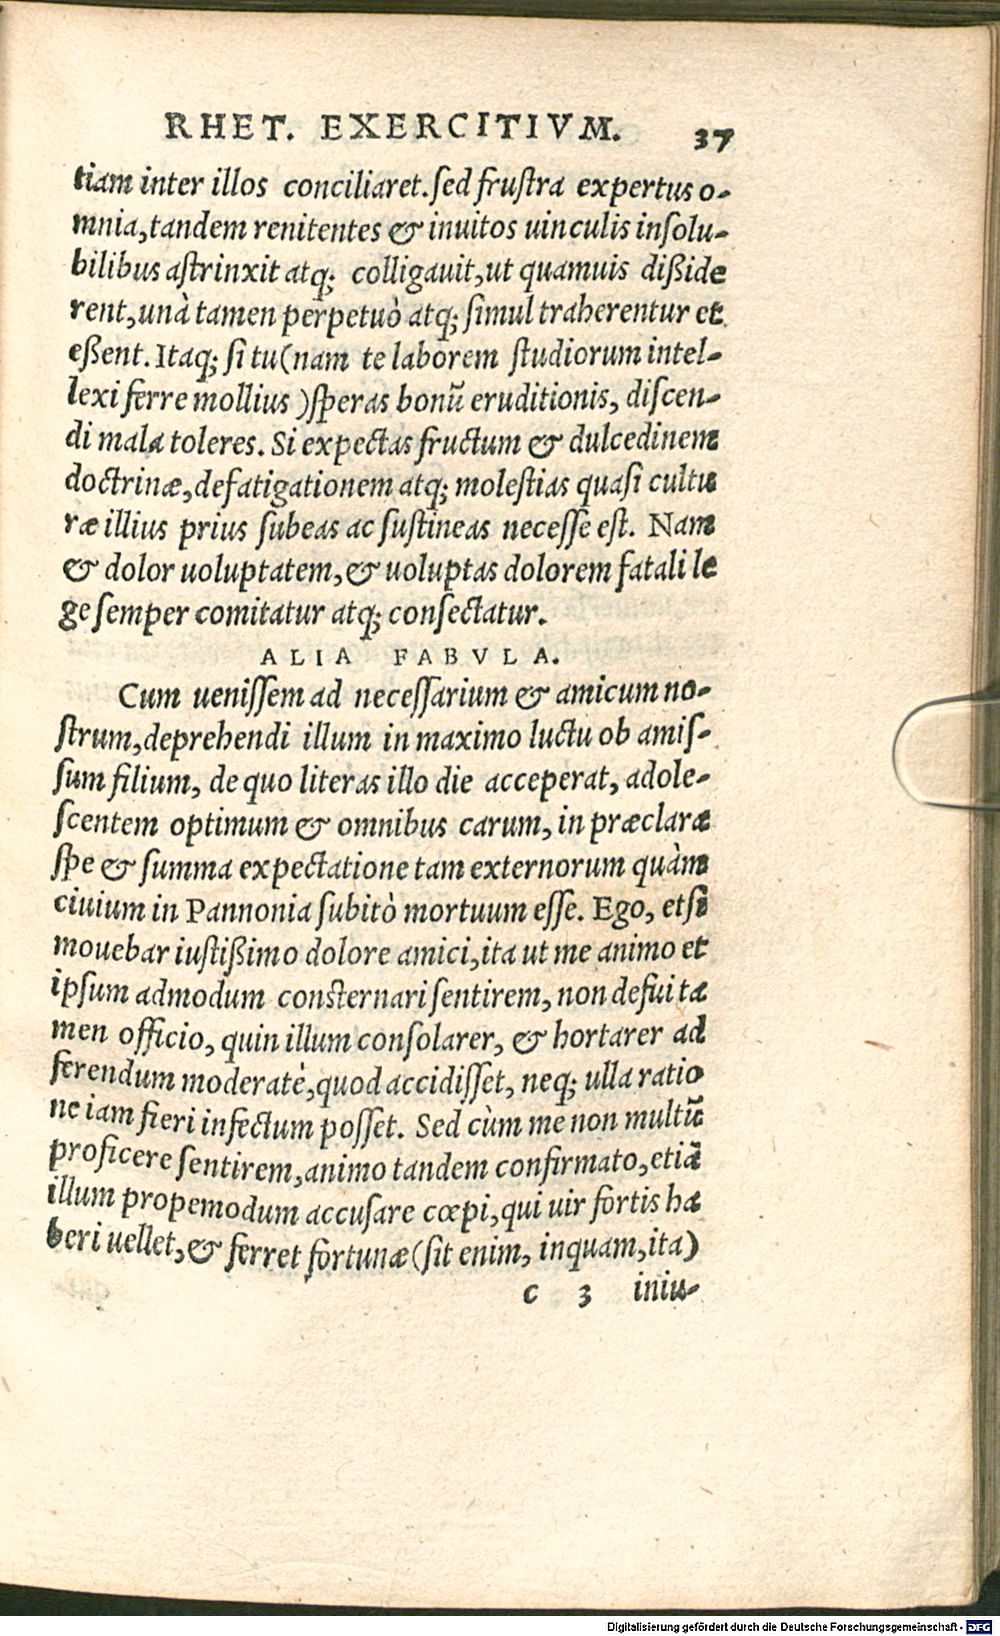 RHET. EXERCITIVM. 37
tiam inter illos conciliaret. ſed fruſtra expertus o-
mnia, tandem renitentes & inuitos uinculis inſolu-
bilibus aſtrinxit atq; colligauit, ut quamuis dißide
rent, unà tamen perpetuò atq; ſimul traherentur et
eßent. Itaq; ſi tu (nam te laborem ſtudiorum intel-
lexi ferre mollius ) ſperas bonũ eruditionis, diſcen-
di mala toleres. Si expectas fructum & dulcedinem
doctrinæ, defatigationem atq; moleſtias quaſi cultu
ræ illius prius ſubeas ac ſuſtineas neceſſe eſt. Nam
& dolor uoluptatem, & uoluptas dolorem fatali le
ge ſemper comitatur atq; conſectatur.
ALIA FABVLA.
Cum ueniſſem ad neceſſarium & amicum no-
ſtrum, deprehendi illum in maximo luctu ob amiſ-
ſum filium, de quo literas illo die acceperat, adole-
ſcentem optimum & omnibus carum, in præclara
ſpe & ſumma expectatione tam externorum quàm
ciuium in Pannonia ſubitò mortuum eſſe. Ego, etſi
mouebar iuſtißimo dolore amici, ita ut me animo et
ipſum admodum conſternari ſentirem, non defui ta
men officio, quin illum conſolarer, & hortarer ad
ferendum moderatè, quod accidiſſet, neq; ulla ratio
ne iam fieri infectum poſſet. Sed cùm me non multũ
proficere ſentirem, animo tandem confirmato, etiã
illum propemodum accuſare cœpi, qui uir fortis ha
beri uellet, & ferret fortunæ (ſit enim, inquam, ita)
c 3 iniu-
Digitalisierung gefördert durch die Deutsche Forschungsgemeinschaft - DFG